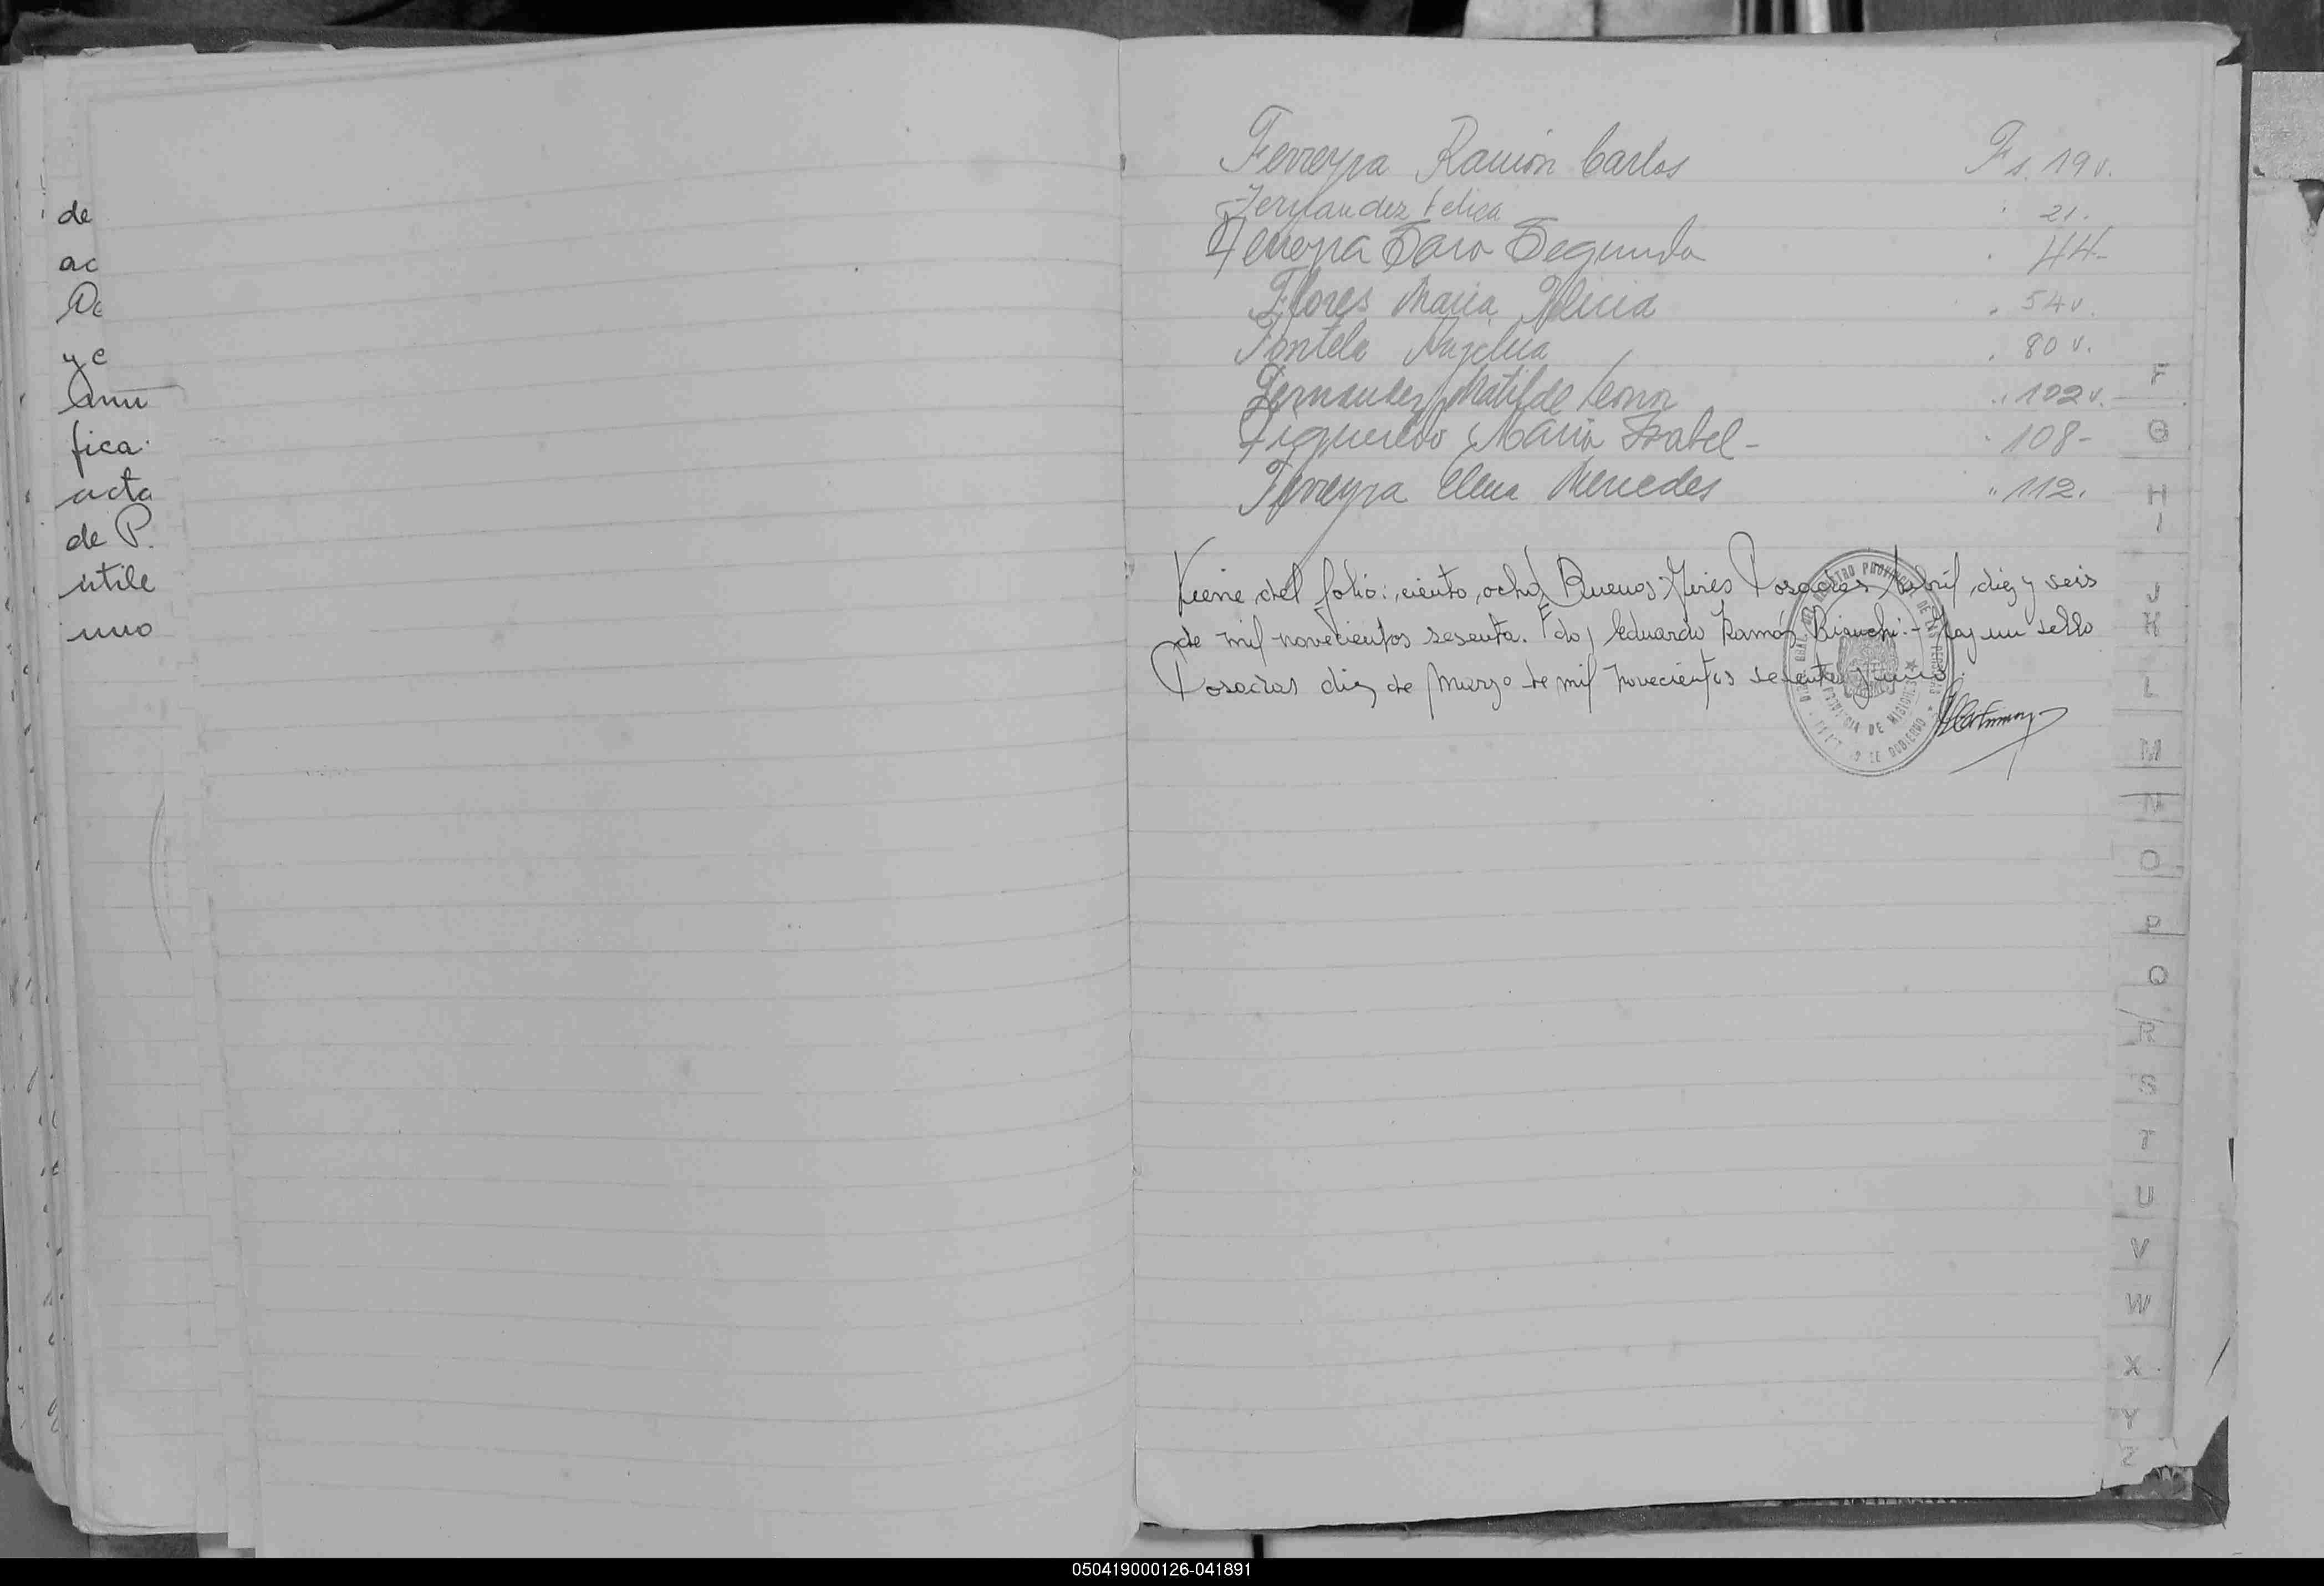 de
ac
De
y c
fica
acta
de P.
utile
uno
Ferreyra Ramón Carlos Fs. 19 v.
Fernandez Felica " 21.
Ferreyra Segundo " 44-
Flores Maria Alicia " 54 v.
Fontela Angelica " 80 v.
Fernandez Matilde Leonor " 102 v.
Figueredo Maria Isabel- " 108-
Ferreyra Elena Mercedes " 112.
Viene del folio: ciento ocho, Buenos Aires Posadas, Abril, diez y seis
de mil novecientos sesenta. Fdo, Eduardo Ramos Bianchi.- Hay un sello
Posadas diez de Marzo de mil novecientos sesenta y uno
REGISTRO PROVINCIAL DE LAS PERSONAS
PROVINCIA DE MISIONES
F
G
H
I
J
K
L
M
N
O
P
Q
R
S
T
U
V
W
X
Y
Z
050419000126-041891